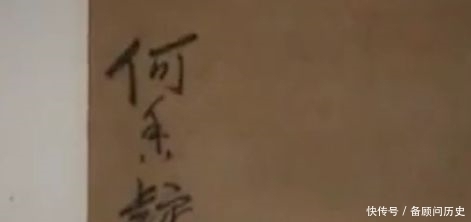 何香凝
快传号 / 备顾问历史